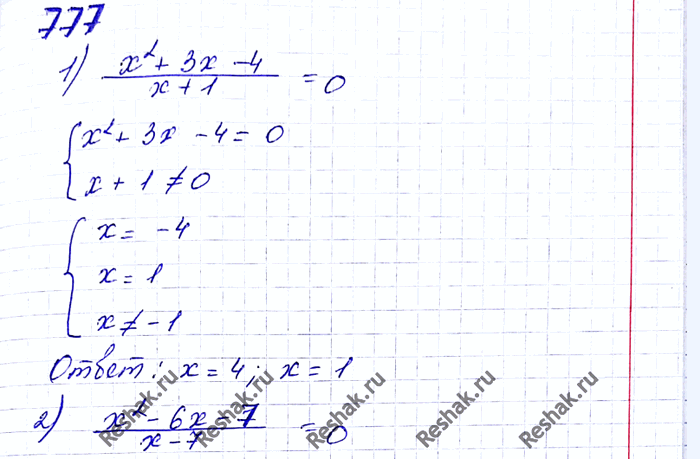 777
1) (x² + 3x - 4)/(x + 1) = 0
{ x² + 3x - 4 = 0
x + 1 ≠ 0
{ x = -4
x = 1
x ≠ -1
Ответ: x = 4; x = 1
2) (x² - 6x - 7)/(x - 7) = 0
Reshak.ru Reshak.ru Reshak.ru Reshak.ru Reshak.ru